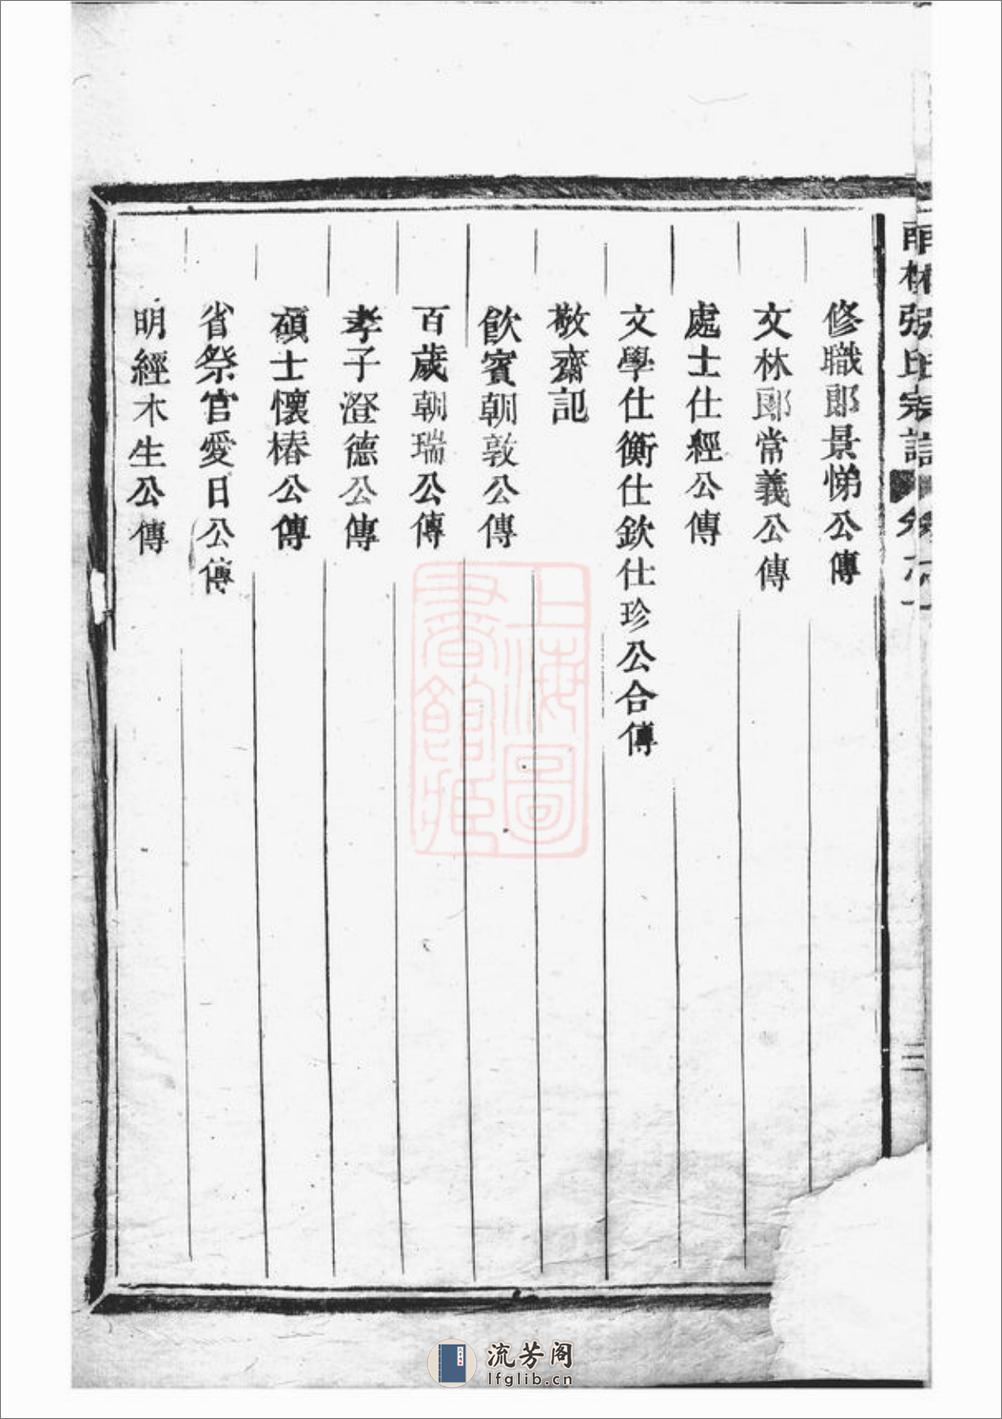 張氏宗譜
修職郎景悌公傳
文林郎常義公傳
處士仕經公傳
文學仕衡仕欽仕珍公合傳
敬齋記
飲賓朝敦公傳
百歲朝瑞公傳
孝子澄德公傳
碩士懷椿公傳
省祭官愛日公傳
明經木生公傳
上海圖
書館藏
流芳阁
lfglib.cn